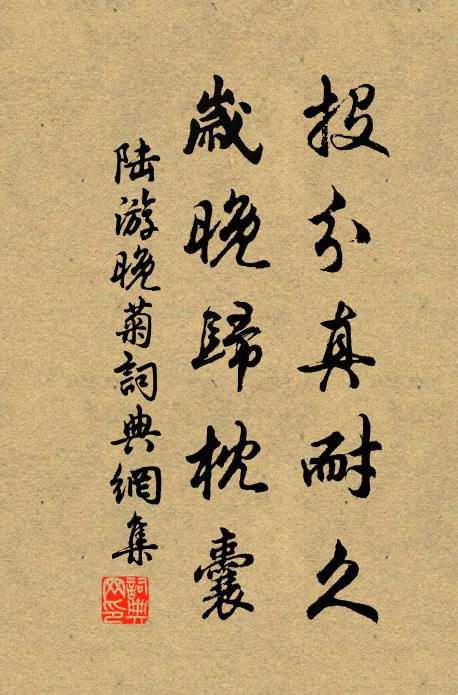 投分真耐久
歲晚歸枕囊
陸游晚菊詞典網集
詞典
网印